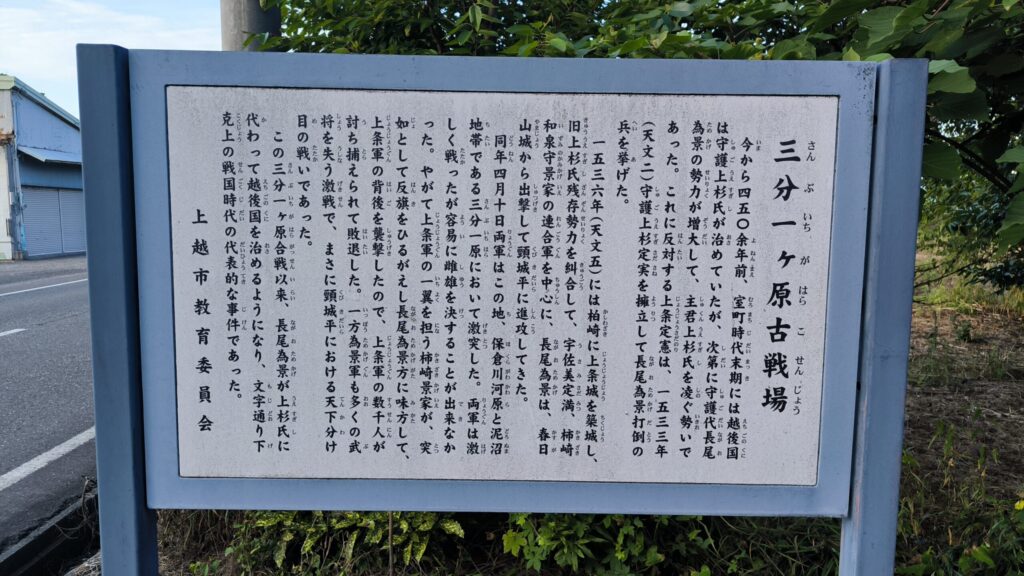 三分一ヶ原古戦場
さんぶいちがはらこせんじょう
今から四五〇余年前、室町時代末期には越後国
は守護上杉氏が治めていたが、次第に守護代長尾
為景の勢力が増大して、主君上杉氏を凌ぐ勢いで
あった。これに反対する上条定憲は、一五三三年
(天文二)守護上杉定実を擁立して長尾為景打倒の
兵を挙げた。
一五三六年(天文五)には柏崎に上条城を築城し、
旧上杉氏残存勢力を糾合して、宇佐美定満、柿崎
和泉守景家の連合軍を中心に、長尾為景は、春日
山城から出撃して頸城平に進攻してきた。
同年四月十日両軍はこの地、保倉川河原と泥沼
地帯である三分一原において激突した。両軍は激
しく戦ったが容易に雌雄を決することが出来なか
った。やがて上条軍の一翼を担う柿崎景家が、突
如として反旗をひるがえし長尾為景方に味方して、
上条軍の背後を襲撃したので、上条軍の数千人が
討ち捕えられて敗退した。一方為景軍も多くの武
将を失う激戦で、まさに頸城平における天下分け
目の戦いであった。
この三分一ヶ原合戦以来、長尾為景が上杉氏に
代わって越後国を治めるようになり、文字通り下
克上の戦国時代の代表的な事件であった。
上越市教育委員会